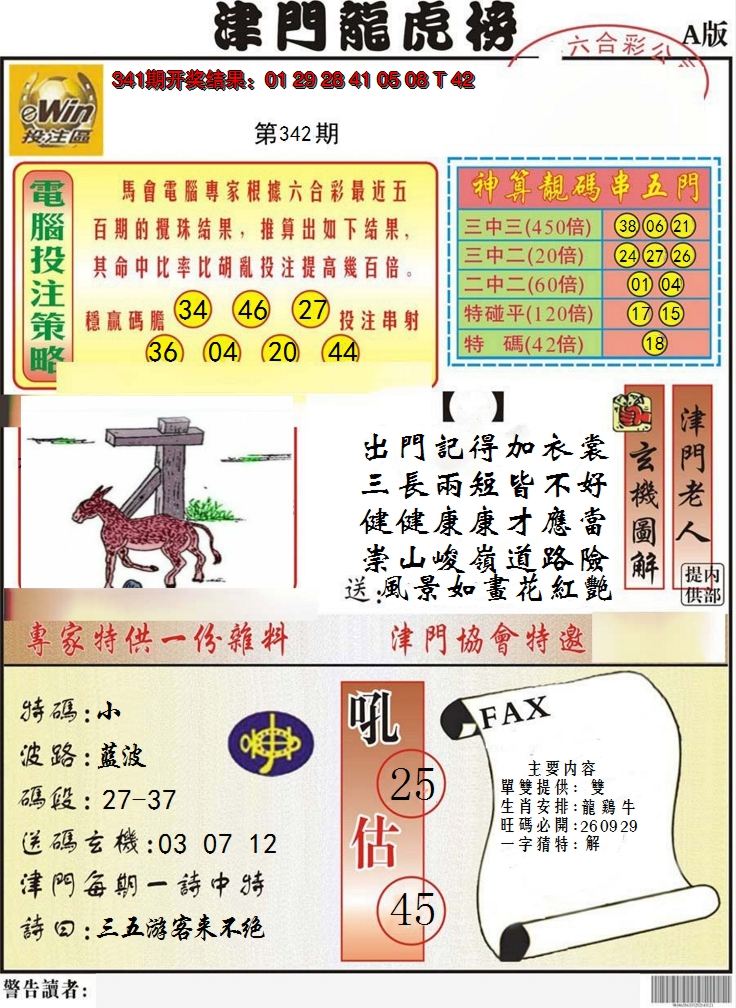 津門龍虎榜
A版
六合彩公
341期开奖结果：01 29 28 41 05 08 T 42
eWin
投注區
第342期
電腦投注策略
馬會電腦專家根據六合彩最近五
百期的攪珠结果，推算出如下结果，
其命中比率比胡亂投注提高幾百倍。
穩赢碼膽 34 46 27 投注串射
36 04 20 44
神算靚碼串五門
三中三(450倍) 38 06 21
三中二(20倍) 24 27 26
二中二(60倍) 01 04
特碰平(120倍) 17 15
特 碼(42倍) 18
【 】
出門記得加衣裳
三長兩短皆不好
健健康康才應當
崇山峻嶺道路險
送：風景如畫花紅艷
玄機圖解
津門老人
内部提供
專家特供一份雜料
津門協會特邀
特碼：小
波路：藍波
碼段：27-37
送碼玄機：03 07 12
津門每期一詩中特
詩曰：三五游客来不绝
吼
25
估
45
FAX
主要内容
單雙提供：雙
生肖安排：龍鷄牛
旺碼必開：260929
一字猜特：解
警告讀者：